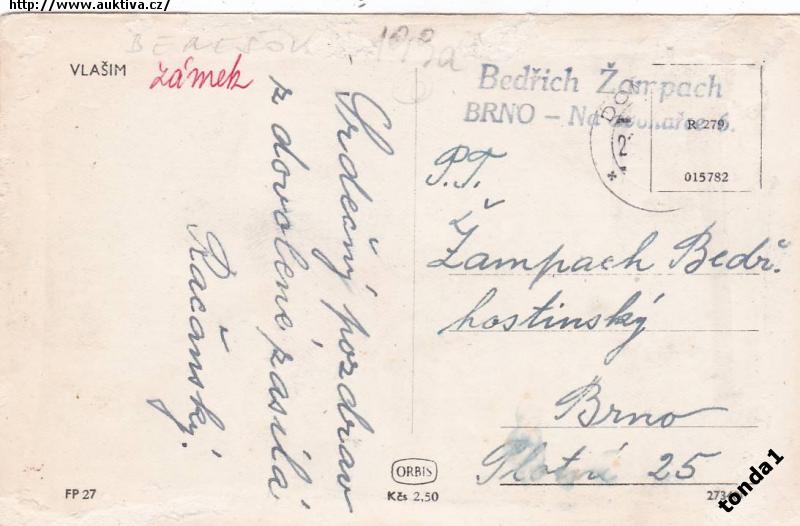 http://www.auktiva.cz/
BENEŠOV
VLAŠIM zámek
Srdečný pozdrav
z dovolené zasílá
Račanský.
Bedřich Žampach
BRNO – Na 6.
R 279
015782
P.T.
Žampach Bedř.
hostinský
Brno
Plotní 25
ORBIS
FP 27
Kčs 2,50
tonda1